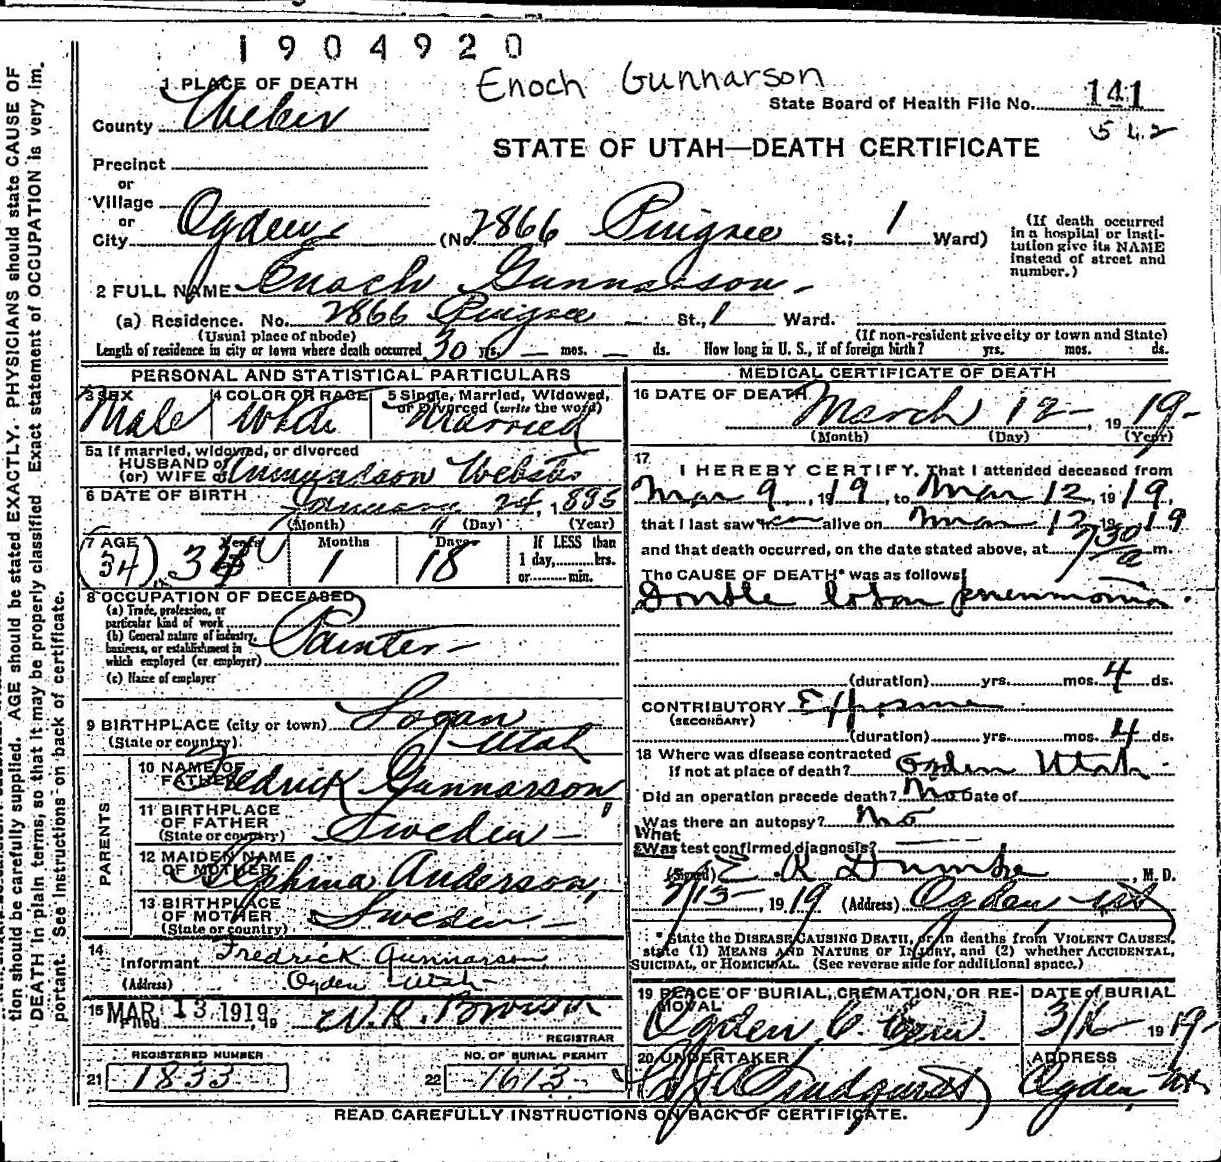 1904920
Enoch Gunnarson
1 PLACE OF DEATH
State Board of Health File No. 141
County Weber
542
STATE OF UTAH—DEATH CERTIFICATE
Precinct
or
Village
or
City Ogden (No. 2866 Pingree St.; 1 Ward)
(If death occurred in a hospital or Insti-
tution give its NAME
instead of street and
number.)
2 FULL NAME Enoch Gunnarson
(a) Residence. No. 2866 Pingree St., 1 Ward.
(Usual place of abode) (If non-resident give city or town and State)
Length of residence in city or town where death occurred 30 yrs. — mos. — ds. How long in U. S., if of foreign birth? yrs. mos. ds.
PERSONAL AND STATISTICAL PARTICULARS
3 SEX 4 COLOR OR RACE 5 Single, Married, Widowed, or Divorced (write the word)
Male White Married
5a If married, widowed, or divorced
HUSBAND of
(or) WIFE of Gunnardson Webster
6 DATE OF BIRTH January 24, 1885
(Month) (Day) (Year)
7 AGE Years Months Days If LESS than
1 day, hrs.
or min.
(34) 34 1 18
8 OCCUPATION OF DECEASED
(a) Trade, profession, or
particular kind of work
(b) General nature of industry,
business, or establishment in
which employed (or employer)
Painter
(c) Name of employer
9 BIRTHPLACE (city or town) Logan
(State or country) Utah
PARENTS
10 NAME OF
FATHER Fredrick Gunnarson
11 BIRTHPLACE
OF FATHER
(State or country) Sweden
12 MAIDEN NAME
OF MOTHER Anderson
13 BIRTHPLACE
OF MOTHER
(State or country) Sweden
14
Informant Fredrick Gunnarson
(Address) Ogden Utah
15 MAR 13 1919
Filed , 19
REGISTRAR
REGISTERED NUMBER NO. OF BURIAL PERMIT
21 1833 22 1613
MEDICAL CERTIFICATE OF DEATH
16 DATE OF DEATH March 12 , 19 19
(Month) (Day) (Year)
17
I HEREBY CERTIFY, That I attended deceased from
Mar 9 , 1919, to Mar 12, 1919,
that I last saw him alive on Mar 12 1919
and that death occurred, on the date stated above, at 730 a m.
The CAUSE OF DEATH* was as follows:
Double lobar pneumonia.
(duration) yrs. mos. 4 ds.
CONTRIBUTORY Exposure
(SECONDARY)
(duration) yrs. mos. 4 ds.
18 Where was disease contracted
if not at place of death? Ogden Utah
Did an operation precede death? No Date of
Was there an autopsy? No
What
Was test confirmed diagnosis?
(Signed) E. R. Dumke , M. D.
3/13 , 1919 (Address) Ogden Ut
* State the DISEASE CAUSING DEATH, or in deaths from VIOLENT CAUSES,
state (1) MEANS AND NATURE OF INJURY, and (2) whether ACCIDENTAL,
SUICIDAL, or HOMICIDAL. (See reverse side for additional space.)
19 PLACE OF BURIAL, CREMATION, OR RE-
MOVAL
DATE of BURIAL
Ogden C. Cem. 3/16 1919
20 UNDERTAKER ADDRESS
Lindquist Ogden, Ut
READ CAREFULLY INSTRUCTIONS ON BACK OF CERTIFICATE.
tion should be carefully supplied. AGE should be stated EXACTLY. PHYSICIANS should state CAUSE OF
DEATH in plain terms, so that it may be properly classified. Exact statement of OCCUPATION is very im-
portant. See instructions on back of certificate.